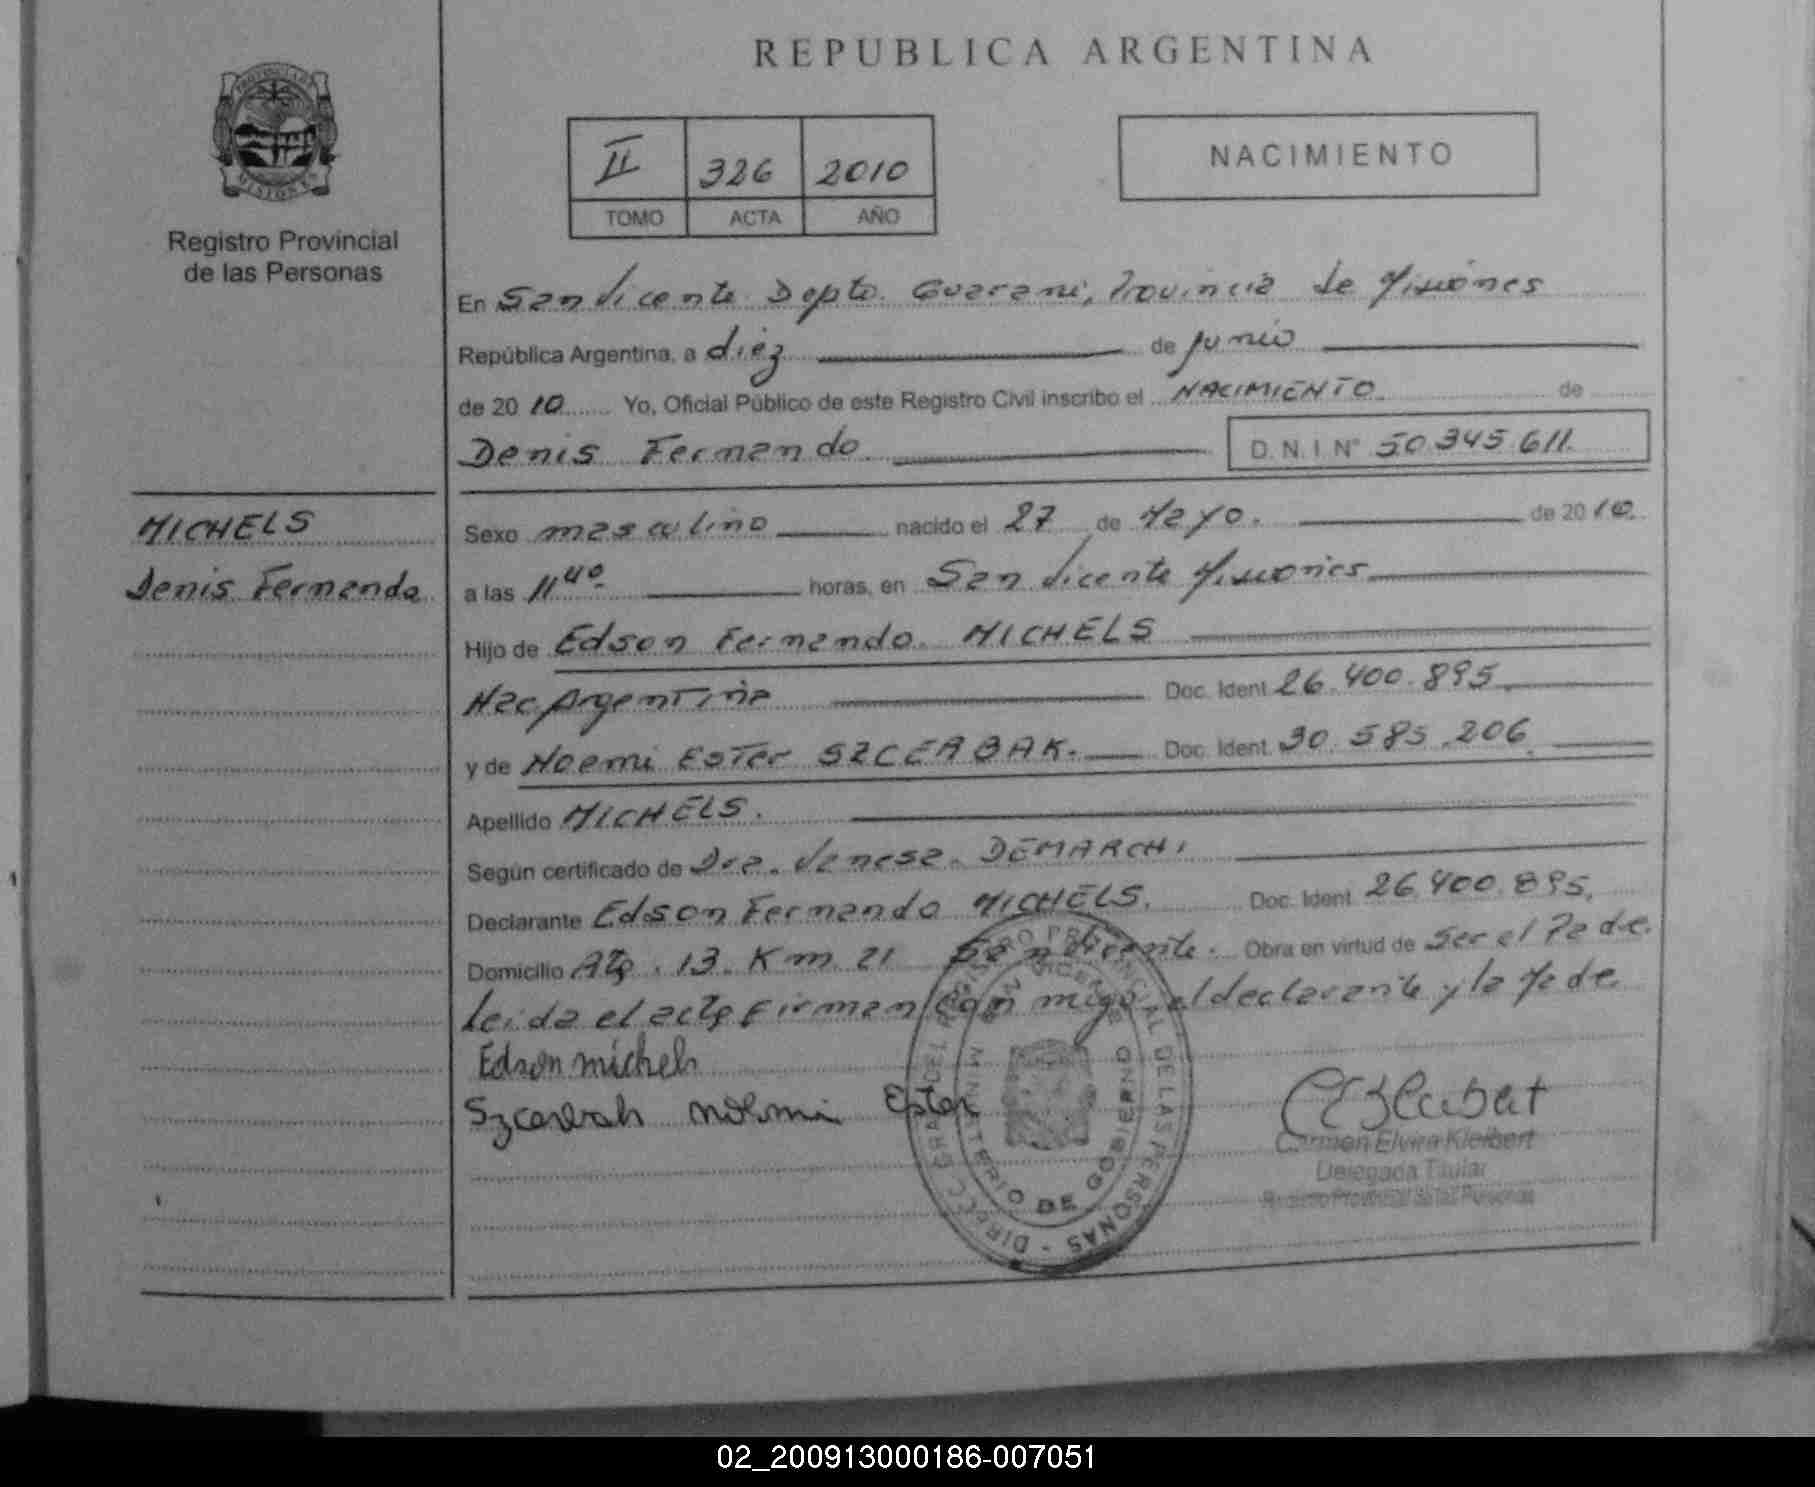 REPUBLICA ARGENTINA
PROVINCIA DE
MISIONES
Registro Provincial
de las Personas
II 326 2010
TOMO ACTA AÑO
NACIMIENTO
En San Vicente Depto. Guarani, Provincia de Misiones
República Argentina, a diez de junio
de 2010 Yo, Oficial Público de este Registro Civil inscribo el NACIMIENTO de
Denis Fernando D. N. I. N° 50.345.611.
MICHELS
Denis Fernando
Sexo masculino nacido el 27 de Mayo. de 2010.
a las 11 40 horas, en San Vicente Misiones
Hijo de Edson Fernando MICHELS
Nac. Argentina Doc. Ident. 26.400.895.
y de Noemi Ester SZCERBAK. Doc. Ident. 30.585.206
Apellido MICHELS.
Según certificado de Dra. Vanesa DEMARCHI
Declarante Edson Fernando MICHELS. Doc. Ident. 26.400.895.
Domicilio Km 21 San Vicente. Obra en virtud de ser el Padre.
Leida el acta firman con migo el declarante y la Madre
Edson michels
Szcerbak noemi Ester
DIRECC GRAL DEL REGISTRO PROVINCIAL DE LAS PERSONAS
SAN VICENTE
MINISTERIO DE GOBIERNO
Carmen Elvira Kleibert
Delegada Titular
Registro Provincial de las Personas
02_200913000186-007051